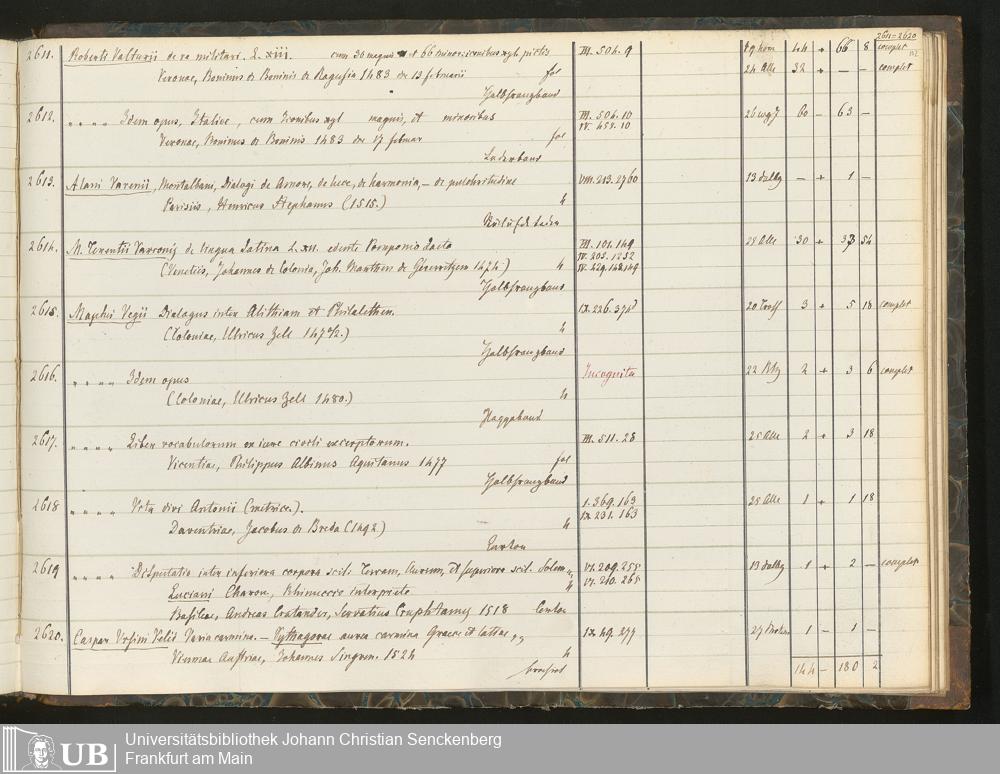 2611-2620
2611. Roberti Valturii de re militari. L. XIII. cum 30 magnis et 66 minor. iconibus xyl. pictis III. 504. 9 44 + 66 8 complet
Veronae, Boninus de Boninis de Ragusia 1483 die 13 februarii fol 24 Alle 32 + — — complet
Halbfranzband
2612. " " " " Idem opus, Italice, cum Iconibus xyl magnis, et minoribus III. 504. 10 60 — 63 —
IV. 458. 10
Veronae, Boninus de Boninis 1483 die 17 februar fol
Lederband
2613. Alani Varenii, Montalbani, Dialogi de Amore, de luce, de harmonia, — de pulchritudine VIII. 213. 2760 13 — + 1 —
Parisiis, Henricus Stephanus (1515.) 4
2614. M. Terentii Varronis de lingua Latina L. XII. edente Pomponio Laeto III. 101. 149 28 Alle 30 + 33 54
IV. 205. 1252
(Venetiis, Johannes de Colonia, Joh. Manthen de Gherretzem 1474) 4
Halbfranzband
2615. Maphei Vegii Dialogus inter Alithiam et Philalethen. IX. 226. 375 20 3 + 5 18 complet
(Coloniae, Ulricus Zell 1470/2.) 4
Halbfranzband
2616. " " " " Idem opus Incognita 22 2 + 3 6 complet
(Coloniae, Ulricus Zell 1480.) 4
Pappband
2617. " " " " Liber vocabulorum ex iure civili excerptorum. III. 511. 28 25 Alle 2 + 3 18
Vicentiae, Philippus Albinus Aquitanus 1477 fol
Halbfranzband
2618 " " " " Vita divi Antonii (metrice.). I. 369. 163 28 Alle 1 + 1 18
IX. 231. 163
Daventriae, Jacobus de Breda (1492) 4
Carton
2619 " " " " Disputatio inter inferiora corpora scil. Terram, Aureum, et superiora scil. Solem " " VI. 209. 255 13 1 + 2 — complet
VI. 210. 265
Luciani Charon, Rhinuccio interprete 4
Basileae, Andreas Cratander, Servatius Cruphtanus 1518 Carton
2620. Caspar Ursini Velii Varia carmina. — Pythagorae aurea carmina Graece et latine, " IX. 49. 277 27 1 — 1 —
Viennae Austriae, Johannes Singren. 1524 4
brochirt
144 — 180 2
UB
Universitätsbibliothek Johann Christian Senckenberg
Frankfurt am Main